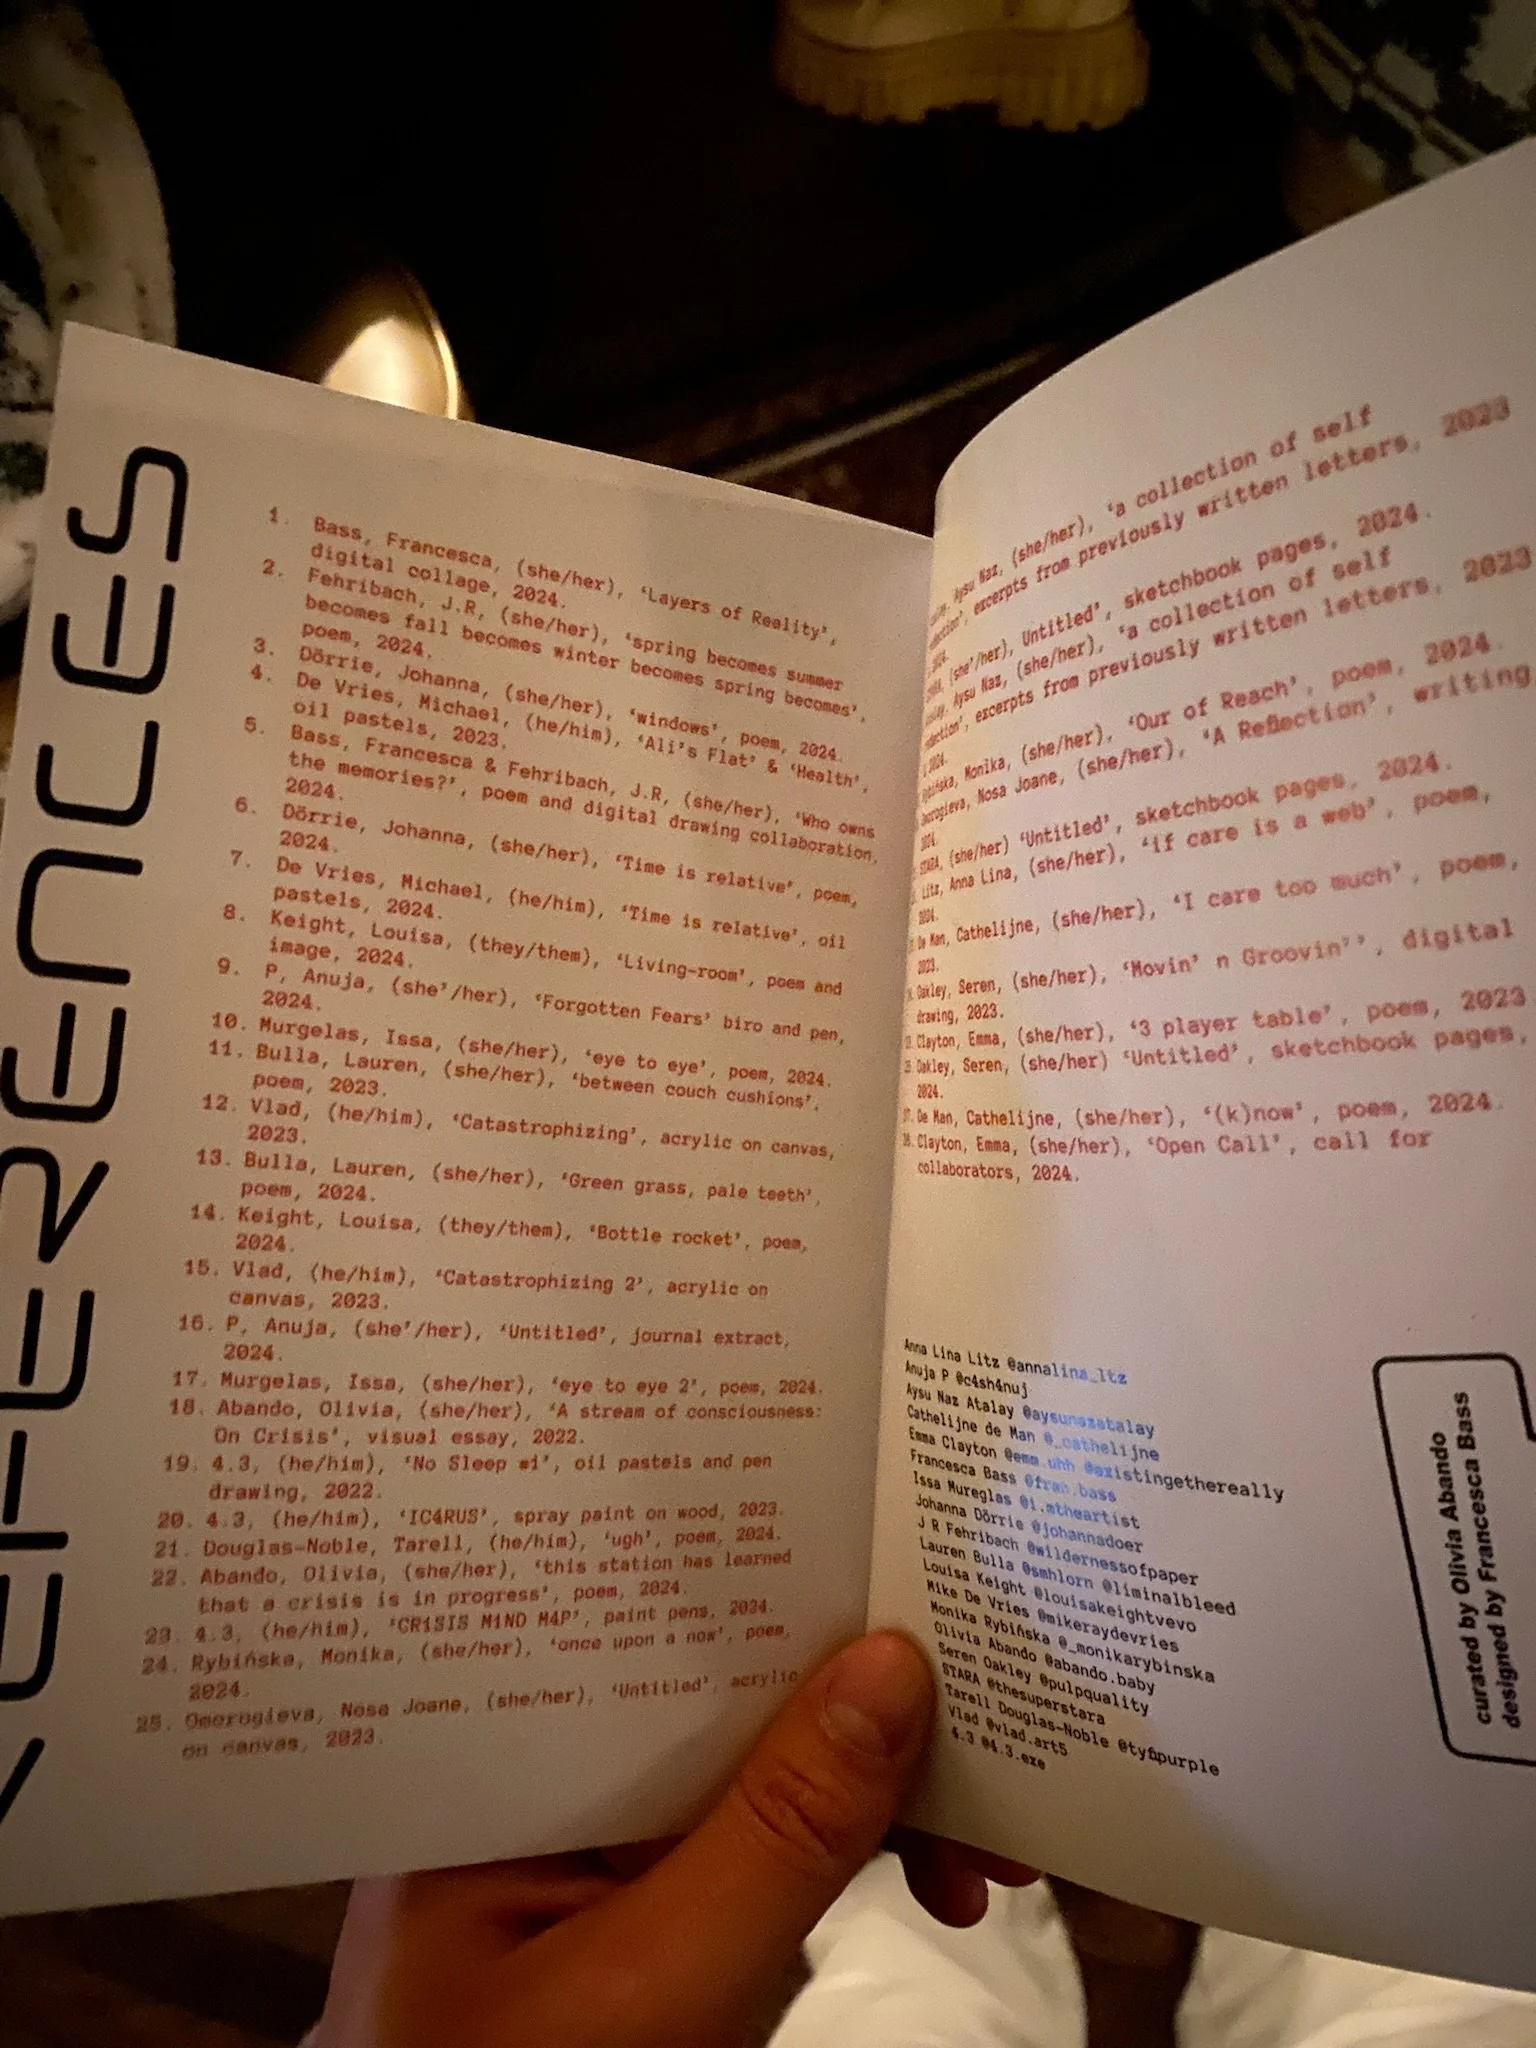 REFERENCES
1. Bass, Francesca, (she/her), ‘Layers of Reality’,
digital collage, 2024.
2. Fehribach, J.R, (she/her), ‘spring becomes summer
becomes fall becomes winter becomes spring becomes’,
poem, 2024.
3. Dörrie, Johanna, (she/her), ‘windows’, poem, 2024.
4. De Vries, Michael, (he/him), ‘Ali’s Flat’ & ‘Health’,
oil pastels, 2023.
5. Bass, Francesca & Fehribach, J.R, (she/her), ‘Who owns
the memories?’, poem and digital drawing collaboration,
2024.
6. Dörrie, Johanna, (she/her), ‘Time is relative’, poem,
2024.
7. De Vries, Michael, (he/him), ‘Time is relative’, oil
pastels, 2024.
8. Keight, Louisa, (they/them), ‘Living-room’, poem and
image, 2024.
9. P, Anuja, (she’/her), ‘Forgotten Fears’ biro and pen,
2024.
10. Murgelas, Issa, (she/her), ‘eye to eye’, poem, 2024.
11. Bulla, Lauren, (she/her), ‘between couch cushions’,
poem, 2023.
12. Vlad, (he/him), ‘Catastrophizing’, acrylic on canvas,
2023.
13. Bulla, Lauren, (she/her), ‘Green grass, pale teeth’,
poem, 2024.
14. Keight, Louisa, (they/them), ‘Bottle rocket’, poem,
2024.
15. Vlad, (he/him), ‘Catastrophizing 2’, acrylic on
canvas, 2023.
16. P, Anuja, (she’/her), ‘Untitled’, journal extract,
2024.
17. Murgelas, Issa, (she/her), ‘eye to eye 2’, poem, 2024.
18. Abando, Olivia, (she/her), ‘A stream of consciousness:
On Crisis’, visual essay, 2022.
19. 4.3, (he/him), ‘No Sleep #1’, oil pastels and pen
drawing, 2022.
20. 4.3, (he/him), ‘IC4RUS’, spray paint on wood, 2023.
21. Douglas-Noble, Tarell, (he/him), ‘ugh’, poem, 2024.
22. Abando, Olivia, (she/her), ‘this station has learned
that a crisis is in progress’, poem, 2024.
23. 4.3, (he/him), ‘CR1S1S M1ND M4P’, paint pens, 2024.
24. Rybińska, Monika, (she/her), ‘once upon a now’, poem,
2024.
25. Omorogieva, Nosa Joane, (she/her), ‘Untitled’, acrylic
on canvas, 2023.
Aysu Naz, (she/her), ‘a collection of self
excerpts from previously written letters, 2023
2024.
(she’/her), Untitled’, sketchbook pages, 2024.
Aysu Naz, (she/her), ‘a collection of self
excerpts from previously written letters, 2023
2024.
Monika, (she/her), ‘Our of Reach’, poem, 2024.
Nosa Joane, (she/her), ‘A Reflection’, writing
2024.
STARA, (she/her) ‘Untitled’, sketchbook pages, 2024.
Litz, Anna Lina, (she/her), ‘if care is a web’, poem,
2024.
De Man, Cathelijne, (she/her), ‘I care too much’, poem,
2023.
Oakley, Seren, (she/her), ‘Movin’ n Groovin’’, digital
drawing, 2023.
Clayton, Emma, (she/her), ‘3 player table’, poem, 2023
Oakley, Seren, (she/her) ‘Untitled’, sketchbook pages,
2024.
De Man, Cathelijne, (she/her), ‘(k)now’, poem, 2024.
Clayton, Emma, (she/her), ‘Open Call’, call for
collaborators, 2024.
Anna Lina Litz @annalina_ltz
Anuja P @c4sh4nuj
Aysu Naz Atalay @aysunazatalay
Cathelijne de Man @_cathelijne
Emma Clayton @emm.uhh @existingethereally
Francesca Bass @fran.bass
Issa Mureglas @i.mtheartist
Johanna Dörrie @johannadoer
J R Fehribach @wildernessofpaper
Lauren Bulla @smhlorn @liminalbleed
Louisa Keight @louisakeightvevo
Mike De Vries @mikeraydevries
Monika Rybińska @_monikarybinska
Olivia Abando @abando.baby
Seren Oakley @pulpquality
STARA @thesuperstara
Tarell Douglas-Noble
Vlad @vlad.art5
4.3 @4.3.exe
curated by Olivia Abando
designed by Francesca Bass